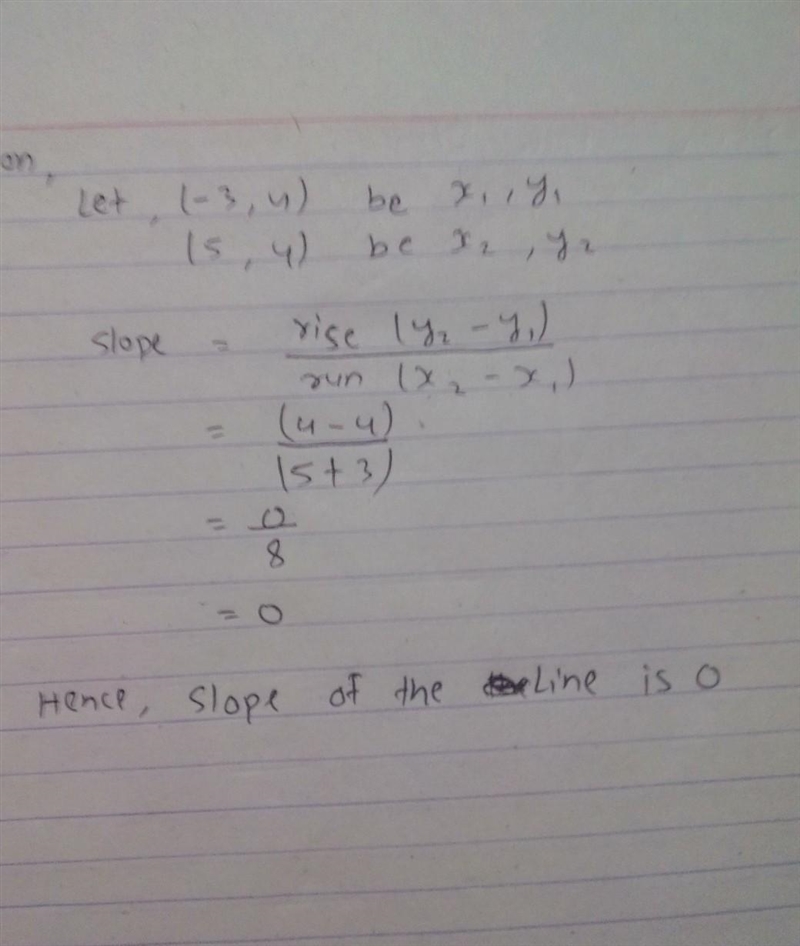 on,
Let, (-3, 4) be x₁, y₁
(5, 4) be x₂, y₂
slope = rise (y₂ - y₁)
run (x₂ - x₁)
= (4-4)
(5+3)
= 0
8
= 0
Hence, slope of the Line is 0